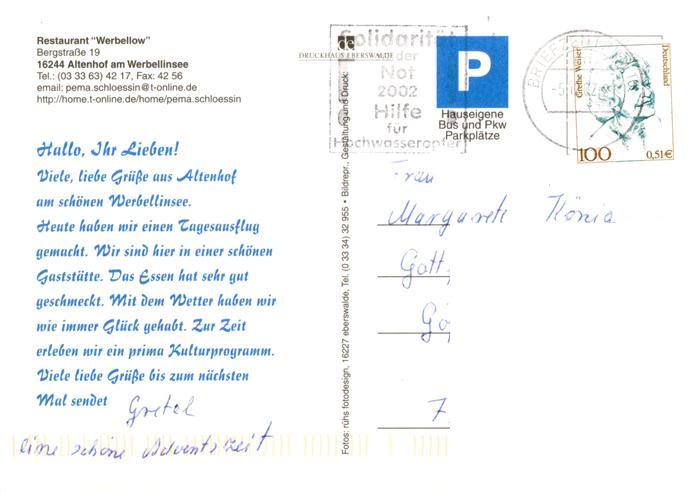 Restaurant "Werbellow"
Bergstraße 19
16244 Altenhof am Werbellinsee
Tel.: (03 33 63) 42 17, Fax: 42 56
email: pema.schloessin@t-online.de
http://home.t-online.de/home/pema.schloessin
Hallo, Ihr Lieben!
Viele, liebe Grüße aus Altenhof
am schönen Werbellinsee.
Heute haben wir einen Tagesausflug
gemacht. Wir sind hier in einer schönen
Gaststätte. Das Essen hat sehr gut
geschmeckt. Mit dem Wetter haben wir
wie immer Glück gehabt. Zur Zeit
erleben wir ein prima Kulturprogramm.
Viele liebe Grüße bis zum nächsten
Mal sendet Gretel
eine schöne Adventszeit
Fotos: rühs fotodesign, 16227 eberswalde, Tel. (0 33 34) 32 955 • Bildrepr., Gestaltung und Druck:
de
DRUCKHAUS EBERSWALDE
Solidarität
in der
Not
2002
Hilfe
für
Hochwasseropfer
P
Hauseigene
Bus und Pkw
Parkplätze
BRIEFZENTRUM
Grethe Weiser
Deutschland
100 0,51€
Frau
Margarete König
Gott
Gö
7